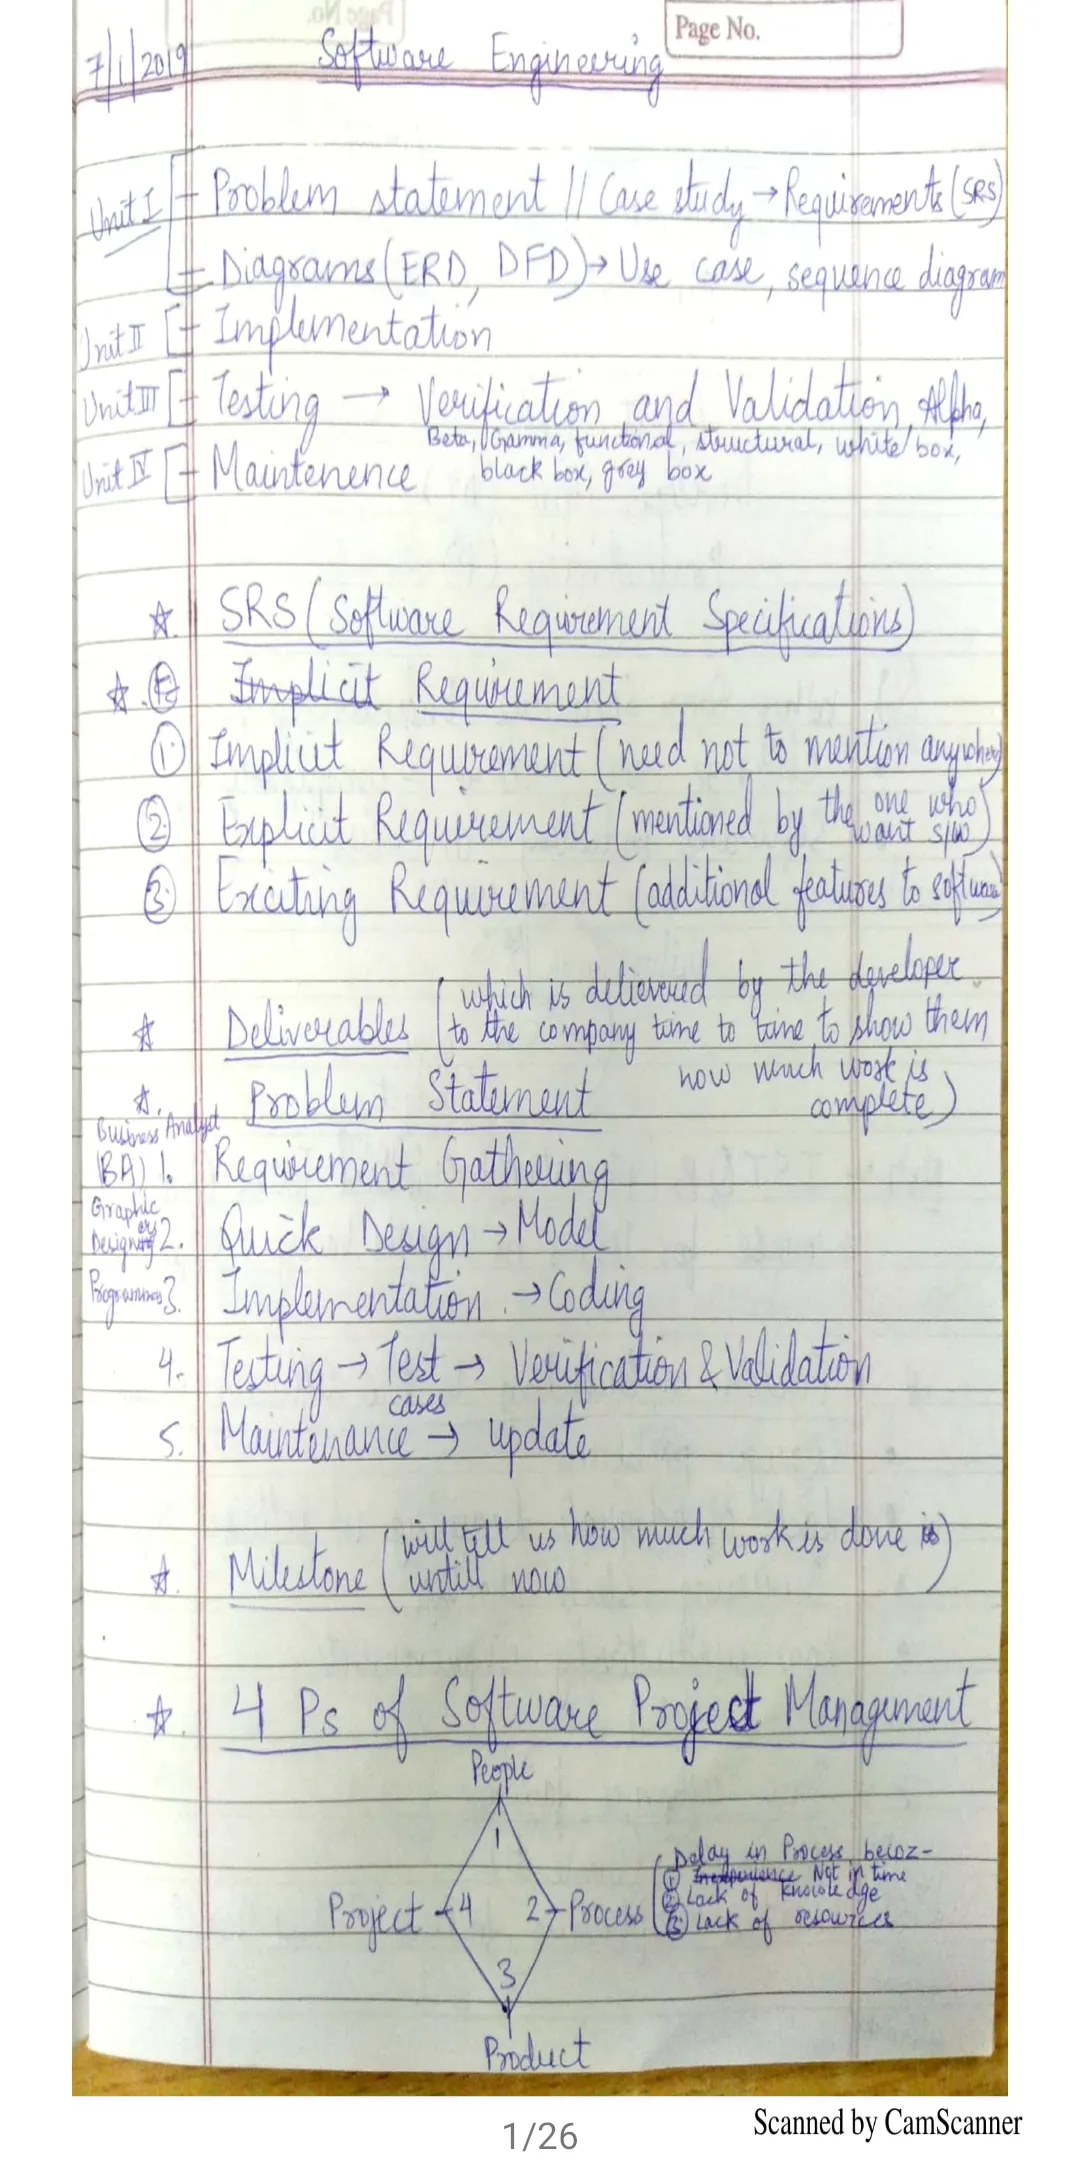 Page No.
7/1/2019 Software Engineering
Unit I - Problem statement // Case study → Requirements (SRS)
- Diagrams (ERD, DFD) → Use case, sequence diagram
Unit II - Implementation
Unit III - Testing → Verification and Validation, Alpha,
Beta, Gamma, functional, structural, white box,
black box, grey box
Unit IV - Maintenence
☆. SRS (Software Requirement Specifications)
☆. Implicit Requirement
1. Implicit Requirement (need not to mention anywhere)
2. Explicit Requirement (mentioned by the one who want s/w)
3. Exciting Requirement (additional features to software)
☆ Deliverables (which is delievered by the developer
to the company time to time to show them
how much work is
complete)
☆. Problem Statement
Business Analyst
(BA) 1. Requirement Gathering
Graphic
Designing 2. Quick Design → Model
3. Implementation. → Coding
4. Testing → Test cases → Verification & Validation
5. Maintenance → update
☆. Milestone (will tell us how much work is done is
untill now)
☆. 4 Ps of Software Project Management
People
1
Project 4 2 Process
Delay in Process becoz-
1 Inexperience Not in time
2 Lack of knowledge
3 Lack of resources
3
Product
1/26
Scanned by CamScanner